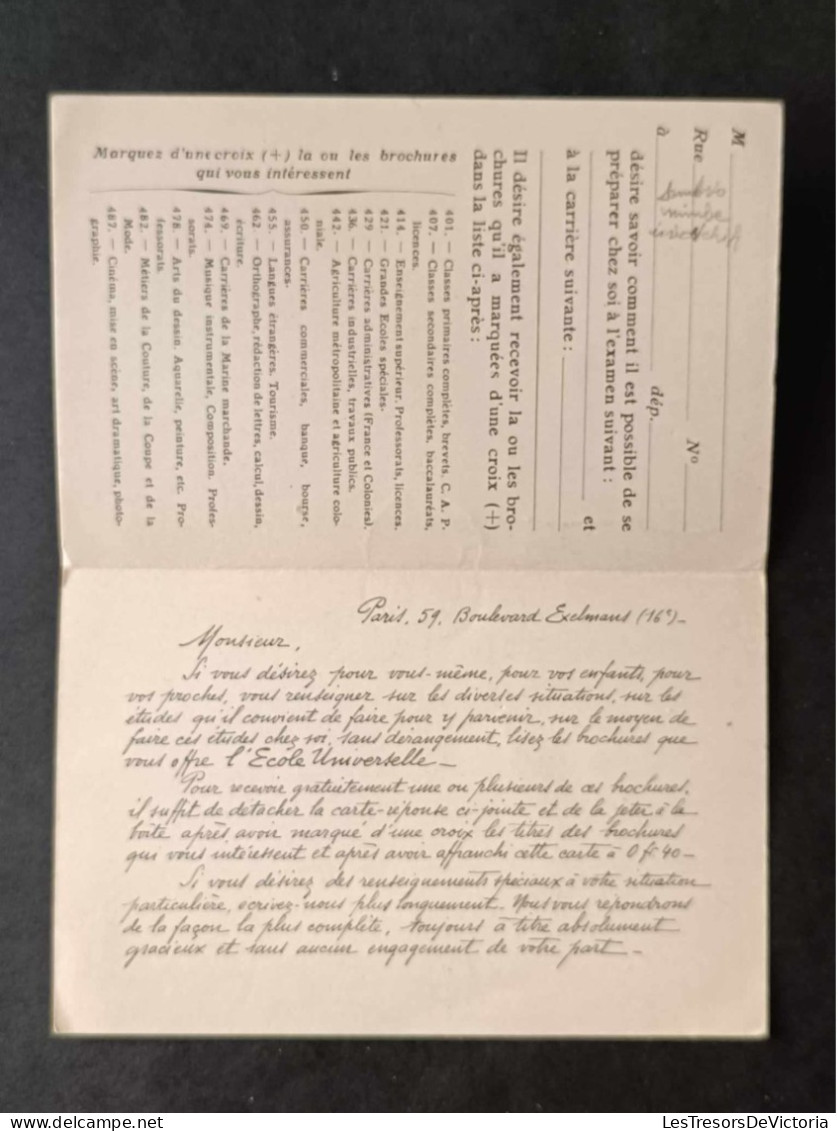 M
Rue
N°
à
dép.
désire savoir comment il est possible de se
préparer chez soi à l'examen suivant :
et
à la carrière suivante :
Il désire également recevoir la ou les bro-
chures qu'il a marquées d'une croix (+)
dans la liste ci-après :
Marquez d'une croix (+) la ou les brochures
qui vous intéressent
401. — Classes primaires complètes, brevets, C. A. P.
407. — Classes secondaires complètes, baccalauréats,
licences.
414. — Enseignement supérieur. Professorats, licences.
421. — Grandes Ecoles spéciales.
429 — Carrières administratives (France et Colonies).
436. — Carrières industrielles, travaux publics.
442. — Agriculture métropolitaine et agriculture colo-
niale.
450. — Carrières commerciales, banque, bourse,
assurances.
455. — Langues étrangères. Tourisme.
462. — Orthographe, rédaction de lettres, calcul, dessin,
écriture.
469. — Carrières de la Marine marchande.
474. — Musique instrumentale, Composition. Profes-
sorats.
478. — Arts du dessin. Aquarelle, peinture, etc. Pro-
fessorats.
482. — Métiers de la Couture, de la Coupe et de la
Mode.
487. — Cinéma, mise en scène, art dramatique, photo-
graphie.
Paris, 59, Boulevard Exelmans (16e) —
Monsieur,
Si vous désirez pour vous-même, pour vos enfants, pour
vos proches, vous renseigner sur les diverses situations, sur les
études qu'il convient de faire pour y parvenir, sur le moyen de
faire ces études chez soi, sans dérangement, lisez les brochures que
vous offre l'Ecole Universelle —
Pour recevoir gratuitement une ou plusieurs de ces brochures,
il suffit de détacher la carte-réponse ci-jointe et de la jeter à la
boîte après avoir marqué d'une croix les titres des brochures
qui vous intéressent et après avoir affranchi cette carte à 0 fr. 40 —
Si vous désirez des renseignements spéciaux à votre situation
particulière, écrivez-nous plus longuement. Nous vous répondrons
de la façon la plus complète, toujours à titre absolument
gracieux et sans aucun engagement de votre part —
LesTresorsDeVictoria